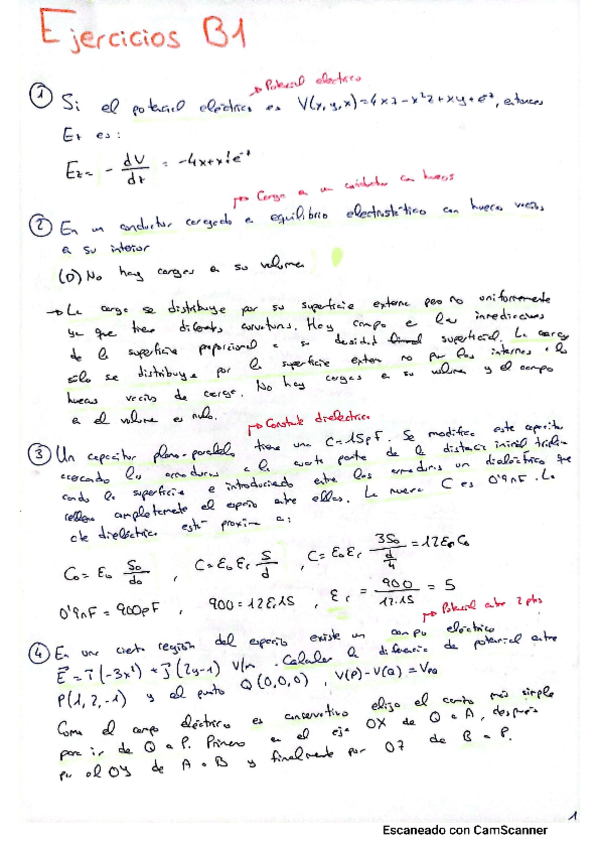 Ejercicios B1
→ Potencial eléctrico
① Si el potencial eléctrico es V(x,y,z)=4xz-x²z+xy+e⁻ᶻ, entonces
Ez es:
Ez = - dV/dz = -4x+x²+e⁻ᶻ
→ Carga en un conductor con huecos
② En un conductor cargado en equilibrio electrostático con huecos vacíos
en su interior
(D) No hay cargas en su volumen
→ La carga se distribuye por su superficie externa pero no uniformemente
ya que tiene diferentes curvaturas. Hay campo en las inmediaciones
de la superficie proporcional a su densidad superficial. La carga
sólo se distribuye por la superficie externa no por las internas o los
huecos vacíos de carga. No hay cargas en su volumen y el campo
en el volumen es nulo.
→ Constante dieléctrica
③ Un capacitor plano-paralelo tiene una C=15pF. Se modifica este capacitor
acercando las armaduras a la cuarta parte de la distancia inicial, tripli-
cando la superficie e introduciendo entre las armaduras un dieléctrico que
rellena completamente el espacio entre ellas. La nueva C es 0'9nF. La
cte dieléctrica está próxima a:
C₀ = ε₀ S₀/d₀ , C = ε₀ εr S/d , C = ε₀ εr 3S₀/(d/4) = 12 εr C₀
0'9nF = 900pF , 900 = 12 εr 15 , εr = 900/12·15 = 5
→ Potencial entre 2 ptos
④ En una cierta región del espacio existe un campo eléctrico
E = i(-3x²) + j(2y-1) V/m. Calcular la diferencia de potencial entre
P(1,2,-1) y el punto Q(0,0,0), V(P)-V(Q) = VPQ
Como el campo eléctrico es conservativo elijo el camino más simple
para ir de Q a P. Primero en el eje OX de Q a A, después
por el OY de A a B y finalmente por OZ de B a P.
1
Escaneado con CamScanner